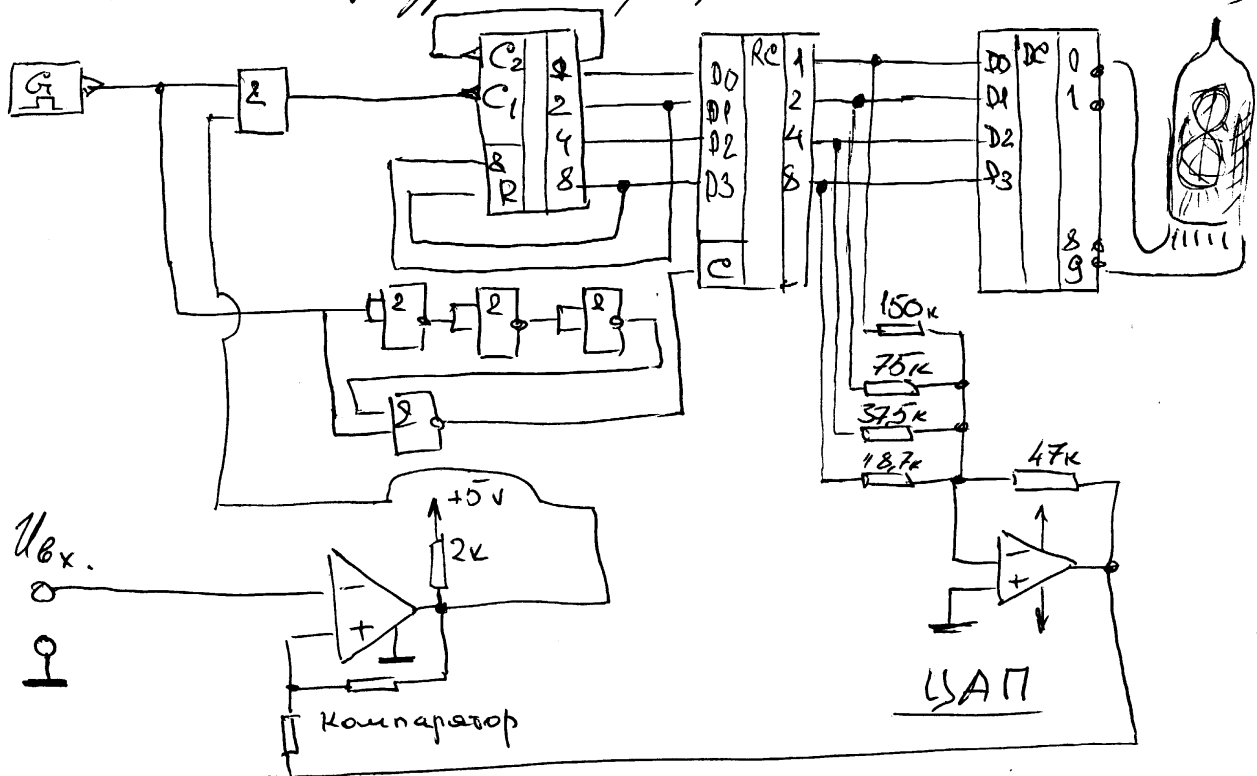 G
2
C2
C1
&
R
1
2
4
8
D0
D1
D2
D3
C
RG
1
2
4
8
D0
D1
D2
D3
DC
0
1
8
9
2
2
2
2
150к
75к
37,5к
18,7к
47к
+5v
2к
Uвх.
−
+
−
+
ЦАП
компарятор